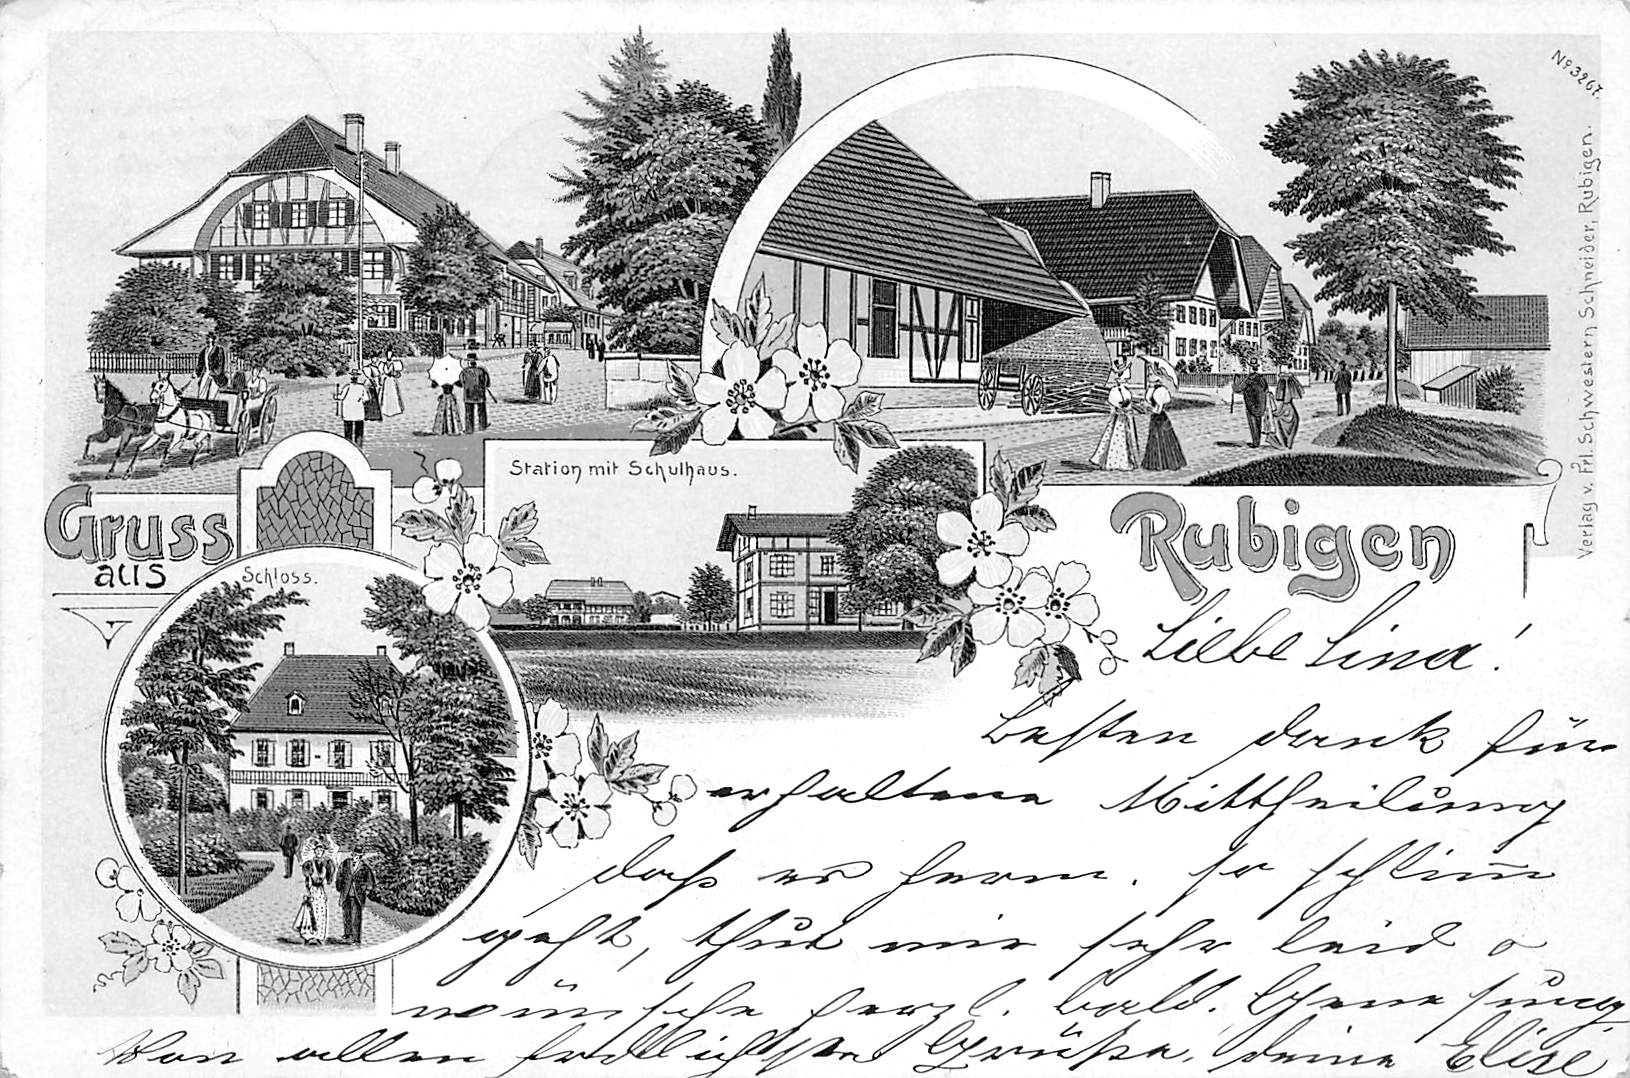 Nº 3267.
Verlag v. Frl. Schwestern Schneider, Rubigen.
Station mit Schulhaus.
Gruss
aus
Rubigen
Schloss.
Liebe Lina!
Besten Dank für
erhaltene Mittheilung
daß es Herm. so schlim̅
geht, thut mir sehr leid &
wünsche herzl. bald. Genesung.
Von allen herzlichste Grüße, deine Elise